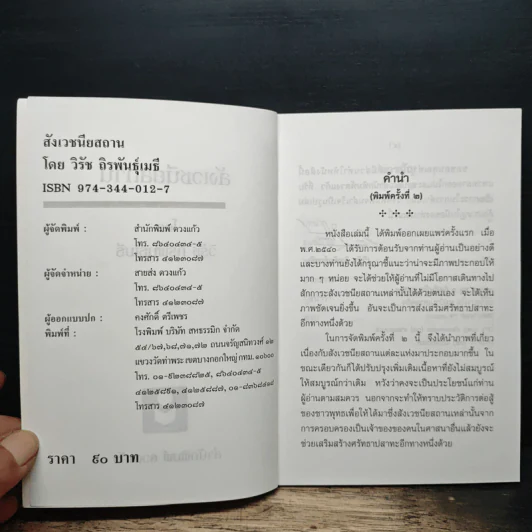 สังเวชนียสถาน
โดย วิรัช ถิรพันธุ์เมธี
ISBN 974-344-012-7
ผู้จัดพิมพ์ : สำนักพิมพ์ ดวงแก้ว
โทร. ๘๖๔๐๔๓๔-๕
โทรสาร ๔๑๒๓๐๘๗
ผู้จัดจำหน่าย : สายส่ง ดวงแก้ว
โทร. ๘๖๔๐๔๓๔-๕
โทรสาร ๔๑๒๓๐๘๗
ผู้ออกแบบปก : คงศักดิ์ ตรีเพชร
พิมพ์ที่ : โรงพิมพ์ บริษัท สหธรรมิก จำกัด
๕๔/๖๗,๖๘,๗๑,๗๒ ถนนจรัญสนิทวงศ์ ๑๒
แขวงวัดท่าพระ เขตบางกอกใหญ่ กทม. ๑๐๖๐๐
โทร. ๘๖๔๐๔๓๔-๕
๔๑๒๕๘๘๗
โทรสาร ๔๑๒๓๐๘๗
ราคา ๙๐ บาท
คำนำ
(พิมพ์ครั้งที่ ๒)
หนังสือเล่มนี้ ได้พิมพ์ออกเผยแพร่ครั้งแรก เมื่อ
พ.ศ.๒๕๔๐ ได้รับการต้อนรับจากท่านผู้อ่านเป็นอย่างดี
และบางท่านยังได้กรุณาชี้แนะว่าน่าจะมีภาพประกอบให้
มาก ๆ หน่อย จะได้ช่วยให้ผู้อ่านที่ไม่มีโอกาสเดินทางไป
สักการะสังเวชนียสถานเหล่านั้นได้ด้วยตนเอง จะได้เห็น
ภาพชัดเจนยิ่งขึ้น อันจะเป็นการส่งเสริมศรัทธาปสาทะอีก
ทางหนึ่งด้วย
ในการจัดพิมพ์ครั้งที่ ๒ นี้ จึงได้นำภาพที่เกี่ยว
เนื่องกับสังเวชนียสถานแต่ละแห่งมาประกอบมากขึ้น ใน
ขณะเดียวกันก็ได้ปรับปรุงเพิ่มเติมเนื้อหาที่ยังไม่สมบูรณ์
ให้สมบูรณ์กว่าเดิม หวังว่าคงจะเป็นประโยชน์แก่ท่าน
ผู้อ่านตามสมควร นอกจากจะทำให้ทราบประวัติการต่อสู้
ของชาวพุทธเพื่อให้ได้มาซึ่งสังเวชนียสถานเหล่านั้นจาก
การครอบครองเป็นเจ้าของของคนในศาสนาอื่นแล้วยังจะ
ช่วยเสริมสร้างศรัทธาปสาทะอีกทางหนึ่งด้วย